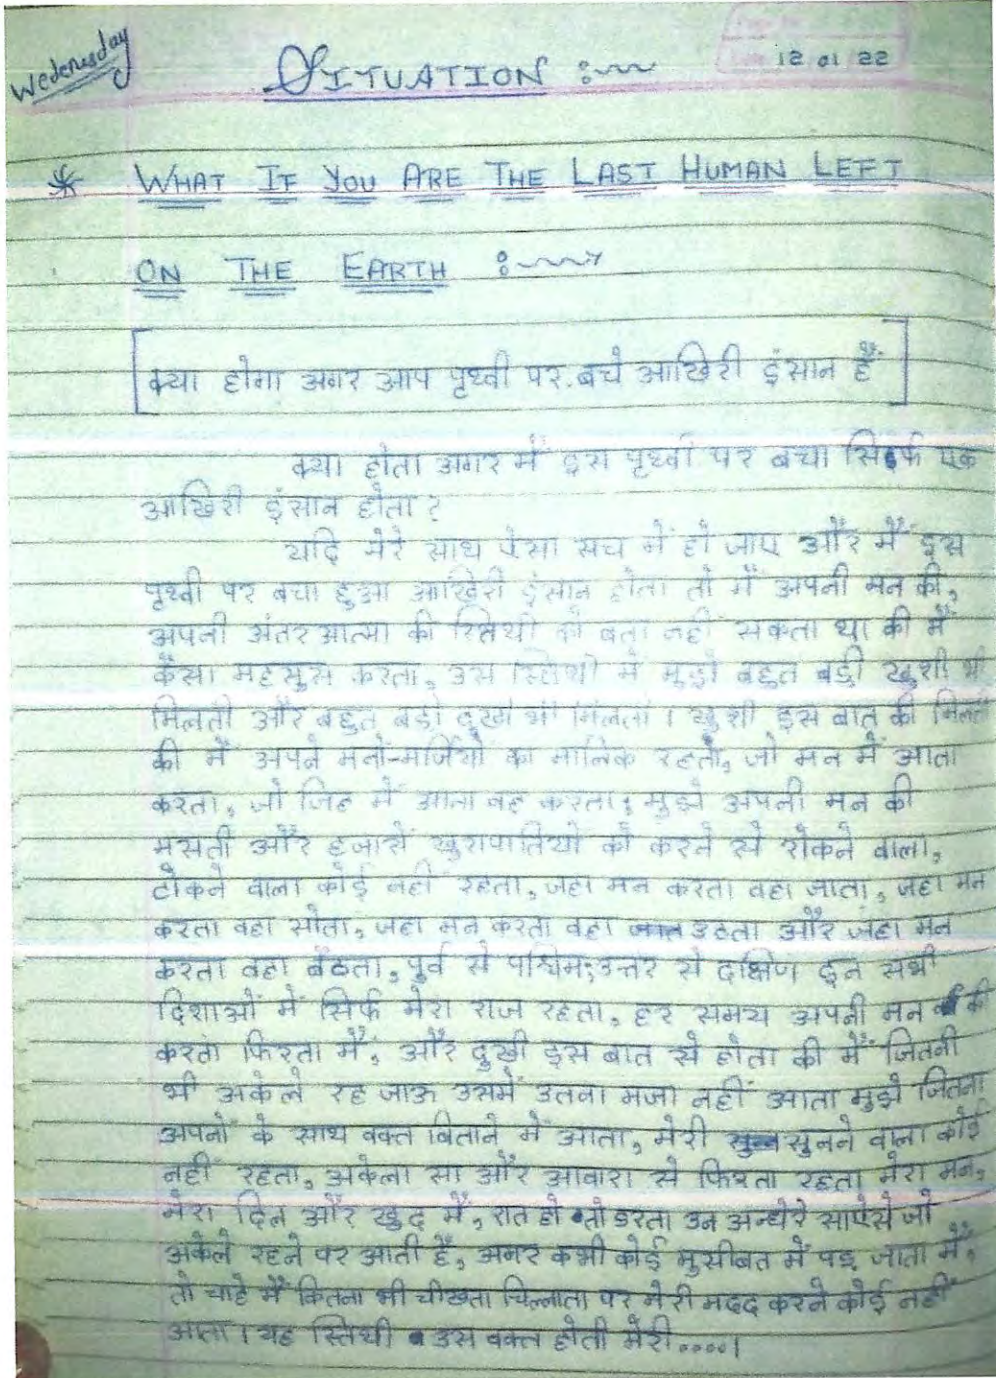 Wedenusday
SITUATION :~~
12 01 22
WHAT IF YOU ARE THE LAST HUMAN LEFT
ON THE EARTH :~~
[क्या होगा अगर आप पृथ्वी पर बचे आखिरी इंसान हैं]
क्या होता अगर में इस पृथ्वी पर बचा सिर्फ एक
आखिरी इंसान होता ?
यदि मेरे साथ ऐसा सच में हो जाए और मैं इस
पृथ्वी पर बचा हुआ आखिरी इंसान होता तो में अपनी मन की,
अपनी अंतर आत्मा की स्तिथी को बता नही सकता था की मैं
कैसा महसुस करता, उस स्तिथी में मुझे बहुत बड़ी खुशी भी
मिलती और बहुत बड़ा दुख भी मिलता । खुशी इस बात की मिलती
की में अपने मनो-मर्जियो का मालिक रहता, जो मन में आता
करता, जो जिह में आता वह करता, मुझे अपनी मन की
मसती और हजारो खुरापातियो को करने से रोकने वाला,
टोकने वाला कोई नही रहता, जहा मन करता वहा जाता, जहा मन
करता वहा सोता, जहा मन करता वहा उठता और जहा मन
करता वहा बैठता, पुर्व से पश्चिम, उत्तर से दक्षिण इन सभी
दिशाओं में सिर्फ मेरा राज रहता, हर समय अपनी मन की
करता फिरता मैं, और दुखी इस बात से होता की में जितनी
भी अकेले रह जाऊ उसमें उतना मजा नहीं आता मुझे जितना
अपनो के साथ वक्त बिताने में आता, मेरी सुनने वाला कोई
नही रहता, अकेला सा और आवारा से फिरता रहता मेरा मन,
मेरा दिल और खुद मैं, रात हो तो डरता उन अन्धेरे साऐसे जो
अकेले रहने पर आती हैं, अगर कभी कोई मुसीबत में पड़ जाता मैं,
तो चाहे मैं कितना भी चीखता चिल्लाता पर मेरी मदद करने कोई नहीं
आता । यह स्तिथी उस वक्त होती मेरी.....।